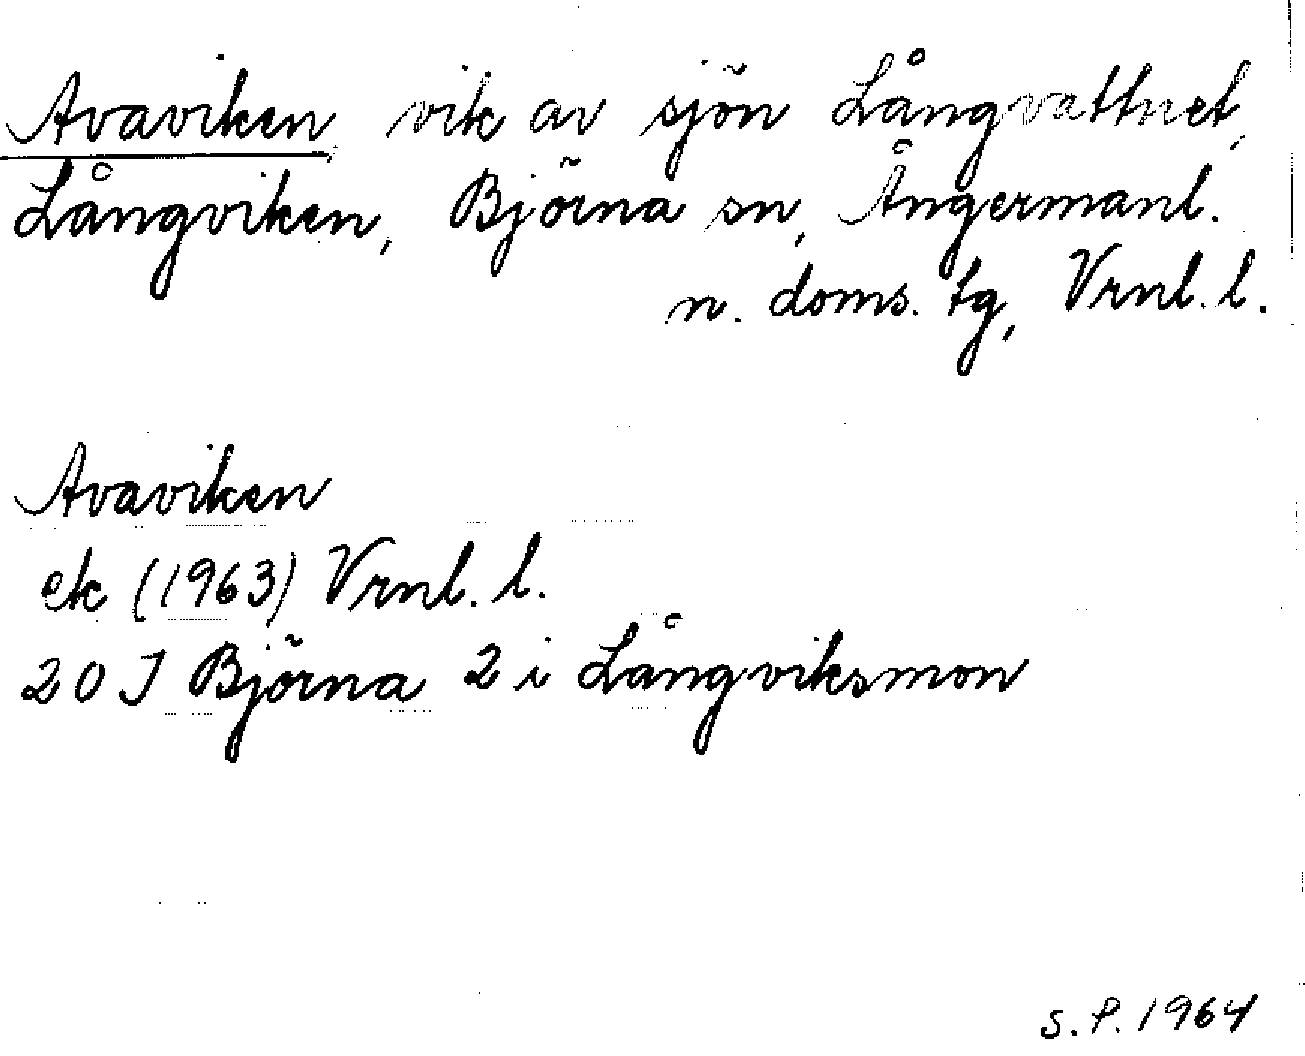 Avaviken, vik av sjön Långvattnet,
Långviken, Björna sn, Ångermanl.
n. doms. tg, Vrnl. l.
Avaviken
ek (1963) Vrnl. l.
20 J Björna 2 i Långviksmon
S. P. 1964